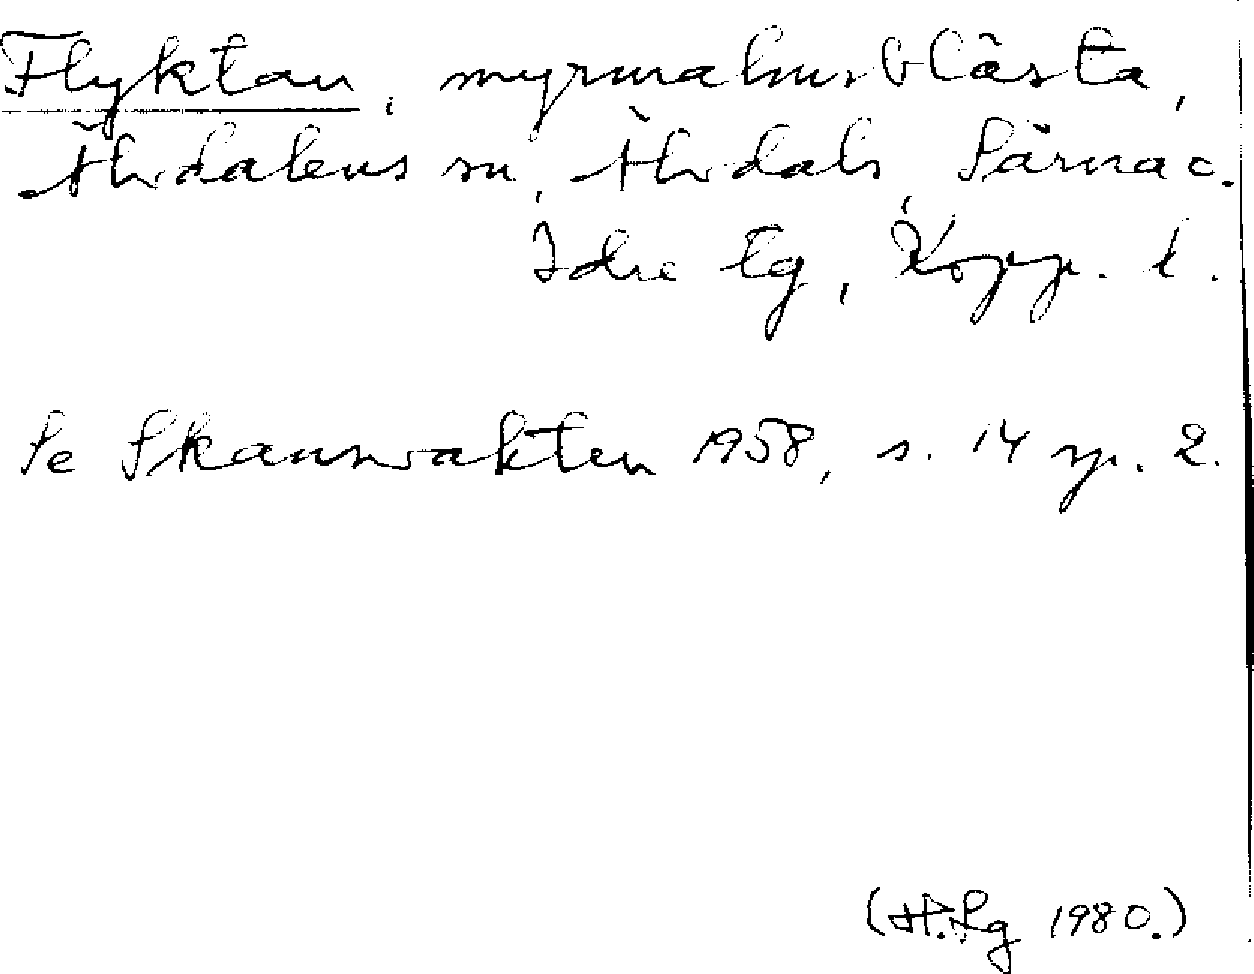 Flyktan, myrmalmsblästa,
Älvdalens sn, Älvdals, Särna o.
Idre tg, Kopp. l.
Se Skansvakten 1958, s. 14 sp. 2.
(H.Lg 1980.)